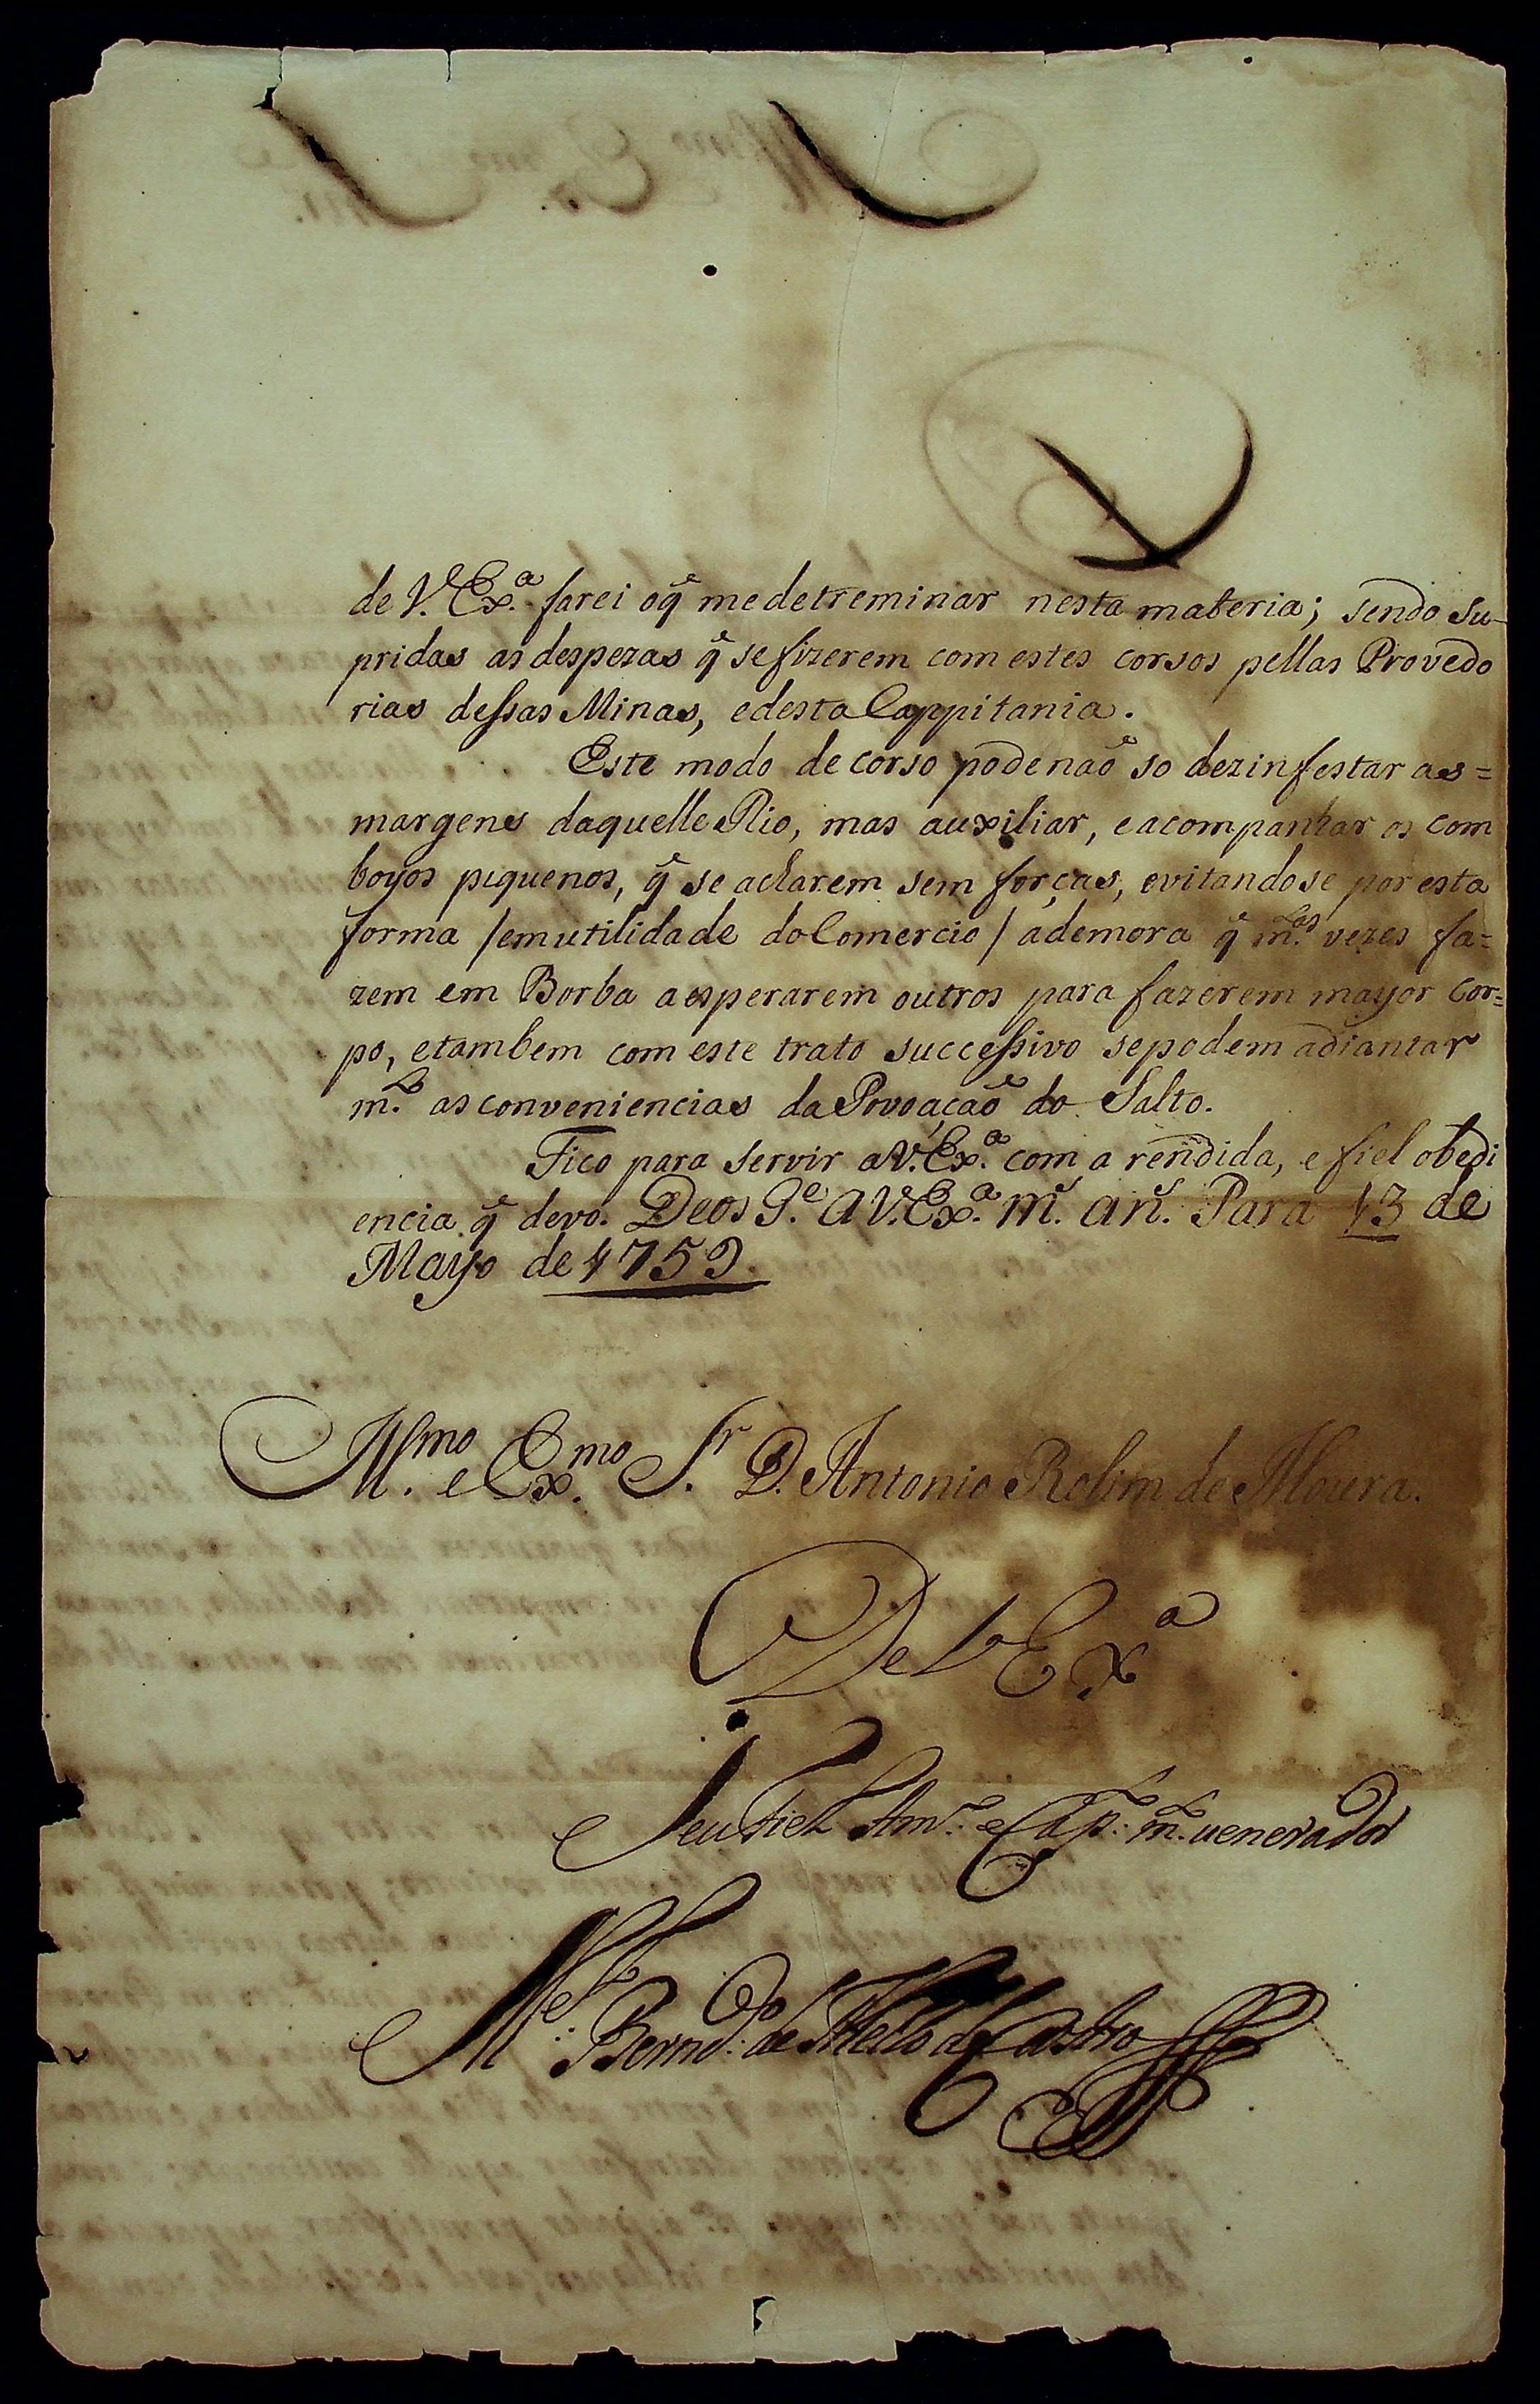 de V. Ex.ª farei oq̃ medetreminar nesta materia; sendo su-
pridas as despezas q̃ sefizerem comestes corsos pellas Provedo
rias dessas Minas, edesta Cappitania.
Este modo de corso podenaõ so dezinfestar as=
margens daquelle Rio, mas auxiliar, eacompanhar os com
boyos piquenos, q̃ se acharem sem forças, evitandose por esta
forma /emutilidade doComercio/ ademora q̃ m.tas vezes fa=
zem em Borba aesperarem outros para fazerem mayor Cor=
po, etambem comeste trato successivo sepodem adiantar
m.to asconveniencias daPovoaçaõ do Salto.
Fico para servir aV.Ex.ª com a rendida, e fiel obedi
encia q̃ devo. Deos G.e a V.Ex.ª m.s an.s Para 13 de
Mayo de 1759.
Ill.mo e Ex.mo S.r D. Antonio Rolim de Moura.
De V Ex.ª
Seu fiel Am.o e Cap.to m.to uenerador
M.el Bernd.o de Mello de Castro